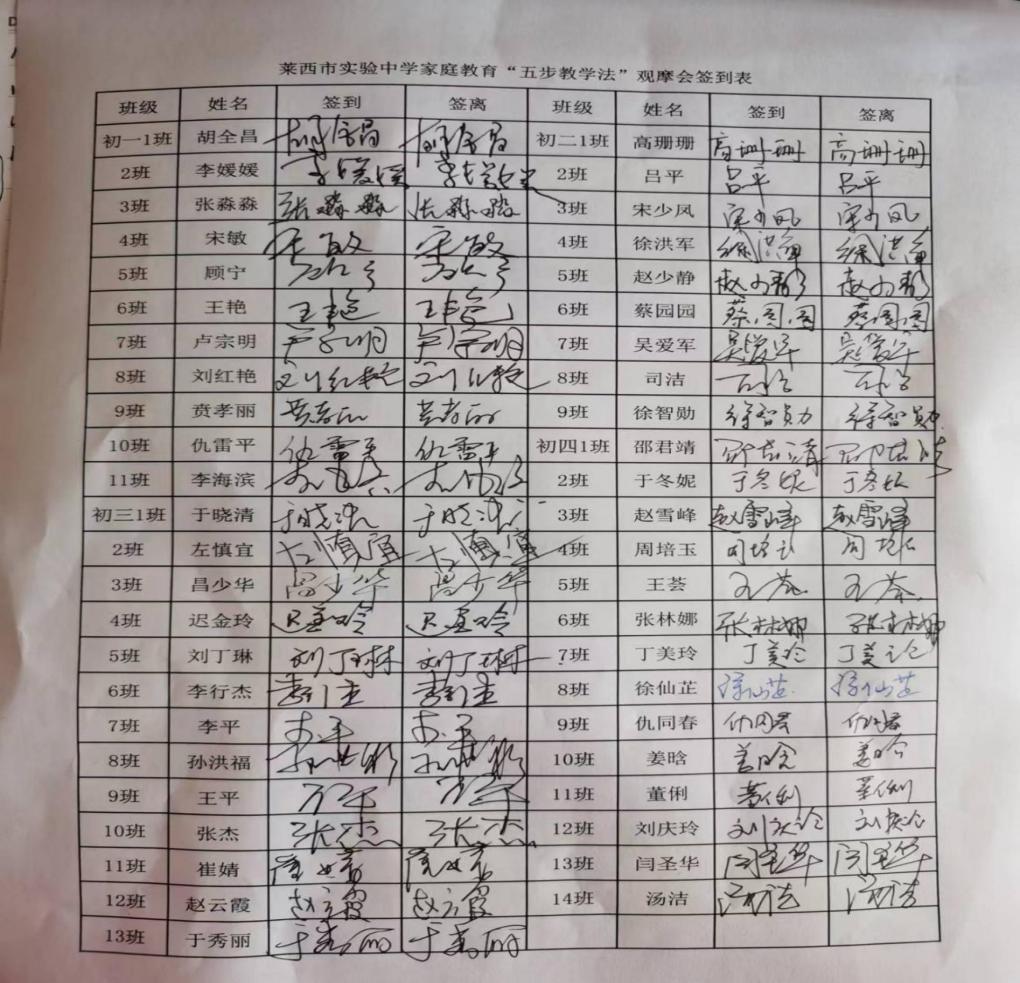 莱西市实验中学家庭教育“五步教学法”观摩会签到表
班级 姓名 签到 签离 班级 姓名 签到 签离
初一1班 胡全昌 胡全昌 胡全昌 初二1班 高珊珊 高珊珊 高珊珊
2班 李媛媛 李媛媛 李媛媛 2班 吕平 吕平 吕平
3班 张淼淼 张淼淼 张淼淼 3班 宋少凤 宋少凤 宋少凤
4班 宋敏 宋敏 宋敏 4班 徐洪军 徐洪军 徐洪军
5班 顾宁 5班 赵少静 赵少静 赵少静
6班 王艳 王艳 王艳 6班 蔡园园 蔡园园 蔡园园
7班 卢宗明 卢宗明 卢宗明 7班 吴爱军 吴爱军 吴爱军
8班 刘红艳 刘红艳 刘红艳 8班 司洁 司洁 司洁
9班 贲孝丽 贲孝丽 贲孝丽 9班 徐智勋 徐智勋 徐智勋
10班 仇雷平 仇雷平 仇雷平 初四1班 邵君靖 邵君靖 邵君靖
11班 李海滨 李海滨 李海滨 2班 于冬妮 于冬妮 于冬妮
初三1班 于晓清 于晓清 于晓清 3班 赵雪峰 赵雪峰 赵雪峰
2班 左慎宜 左慎宜 左慎宜 4班 周培玉 周培玉 周培玉
3班 昌少华 昌少华 昌少华 5班 王荟 王荟 王荟
4班 迟金玲 迟金玲 迟金玲 6班 张林娜 张林娜 张林娜
5班 刘丁琳 刘丁琳 刘丁琳 7班 丁美玲 丁美玲 丁美玲
6班 李行杰 李行杰 李行杰 8班 徐仙芷 徐仙芷 徐仙芷
7班 李平 李平 李平 9班 仇同春 仇同春 仇同春
8班 孙洪福 10班 姜晗 姜晗 姜晗
9班 王平 王平 王平 11班 董俐 董俐 董俐
10班 张杰 张杰 张杰 12班 刘庆玲 刘庆玲 刘庆玲
11班 崔婧 崔婧 崔婧 13班 闫圣华 闫圣华 闫圣华
12班 赵云霞 赵云霞 赵云霞 14班 汤洁 汤洁 汤洁
13班 于秀丽 于秀丽 于秀丽